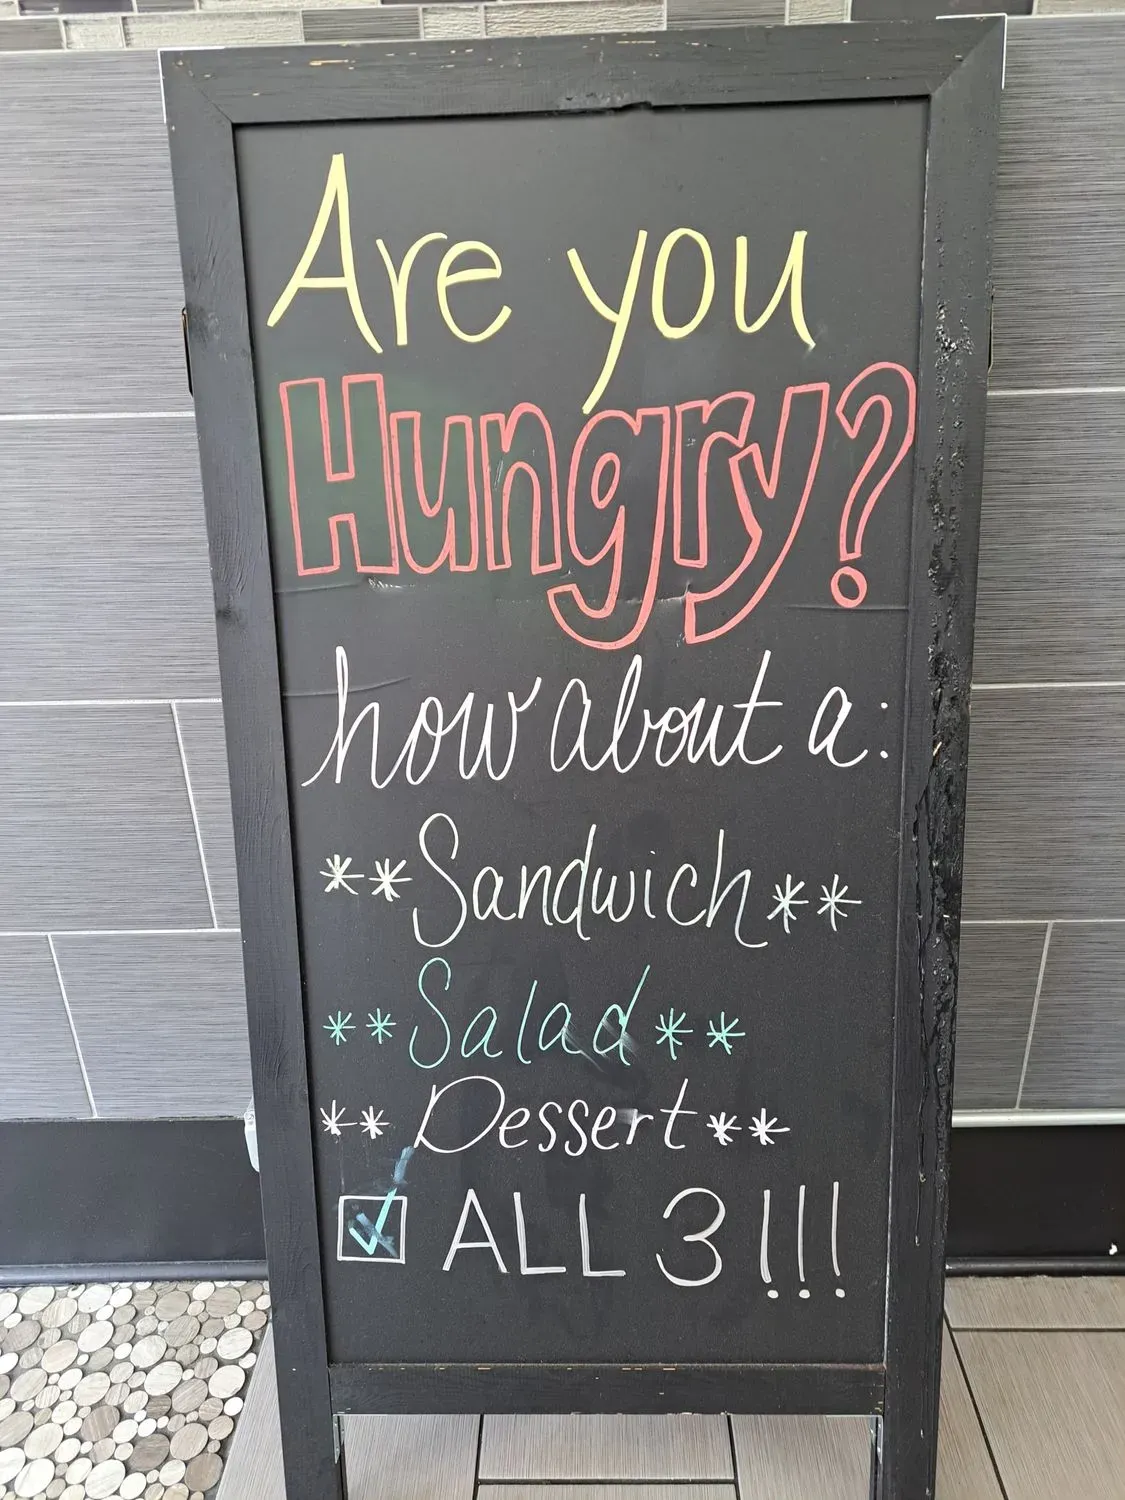 Are you
Hungry?
how about a:
**Sandwich**
**Salad**
**Dessert**
☑ ALL 3!!!